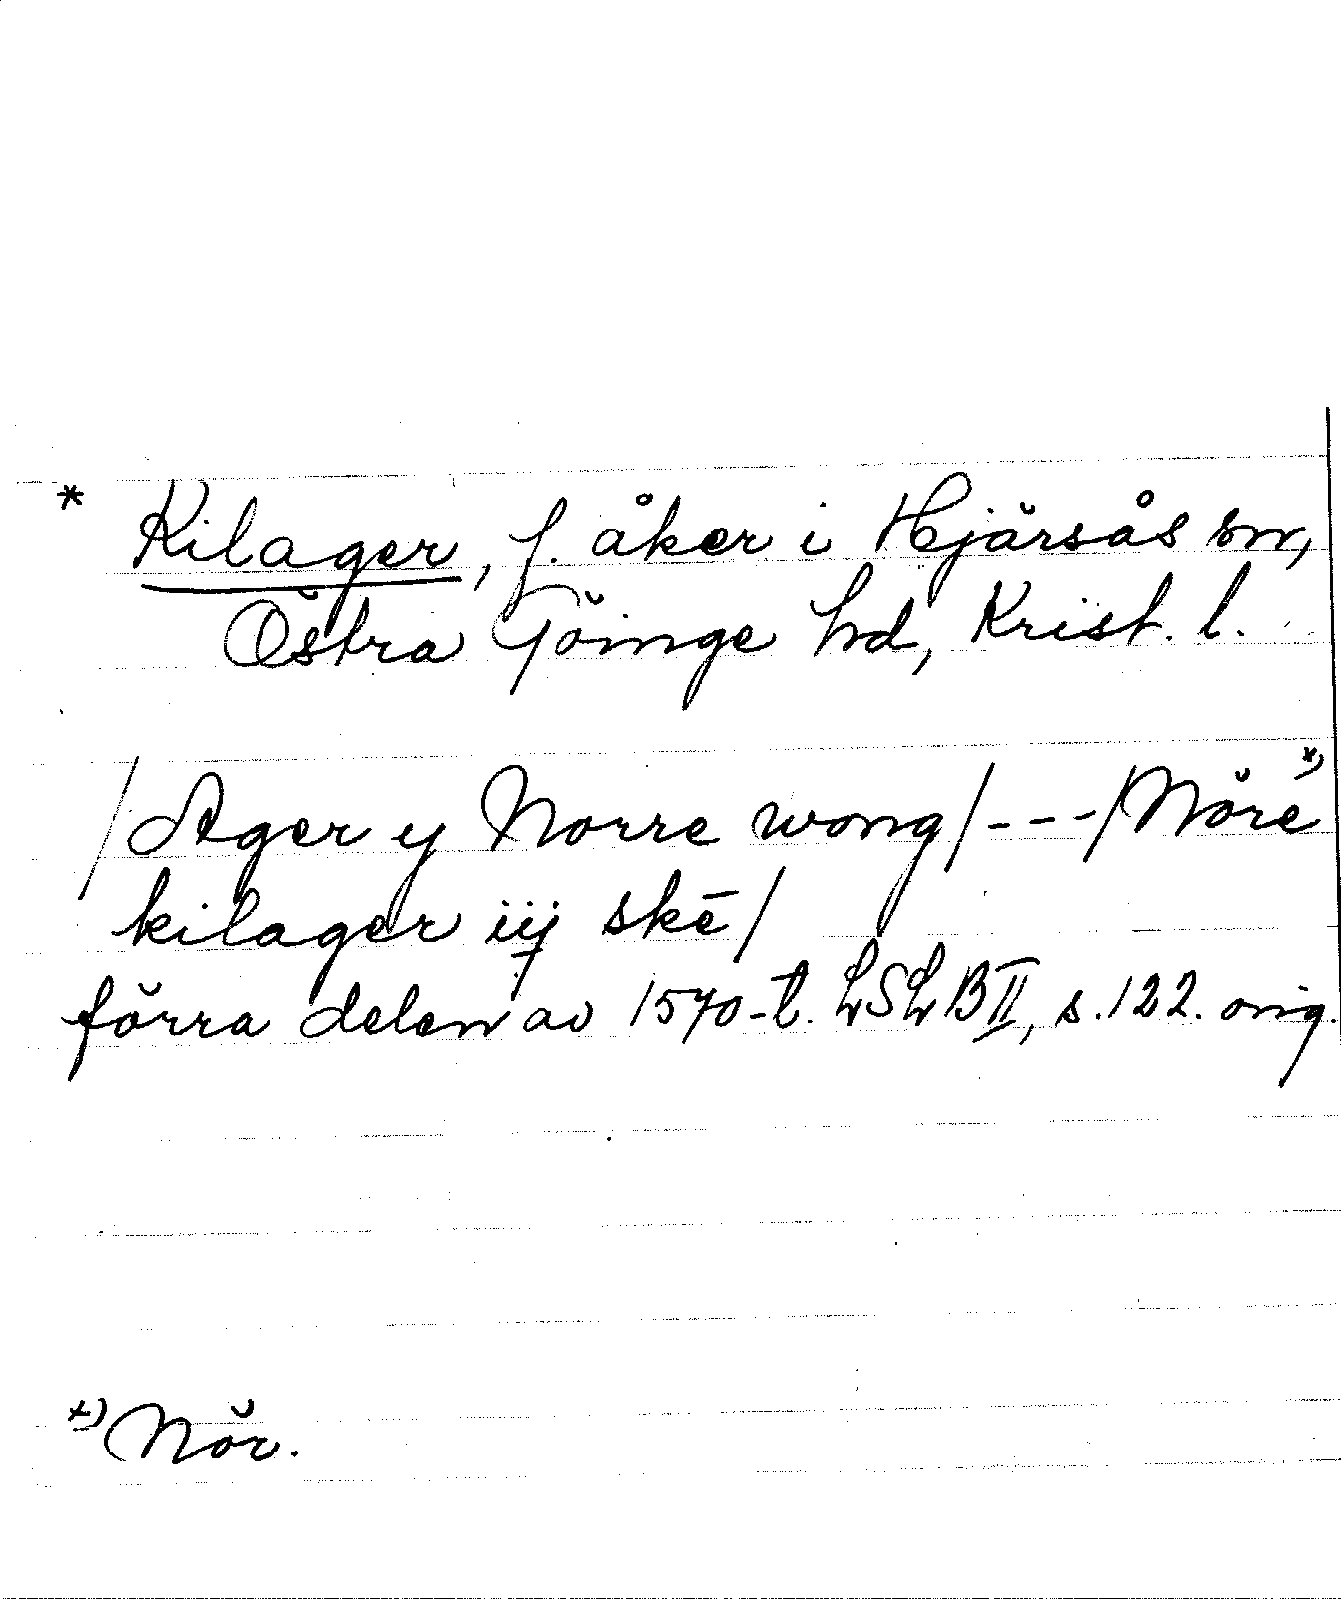 * Kilager, f. åker i Hjärsås sn,
Östra Göinge hd, Krist. l.
/Ager y Norre wong/---/Nöre *)
kilager iij skē/
förra delen av 1570-t. LSLB II, s. 122. orig.
*) Nör.